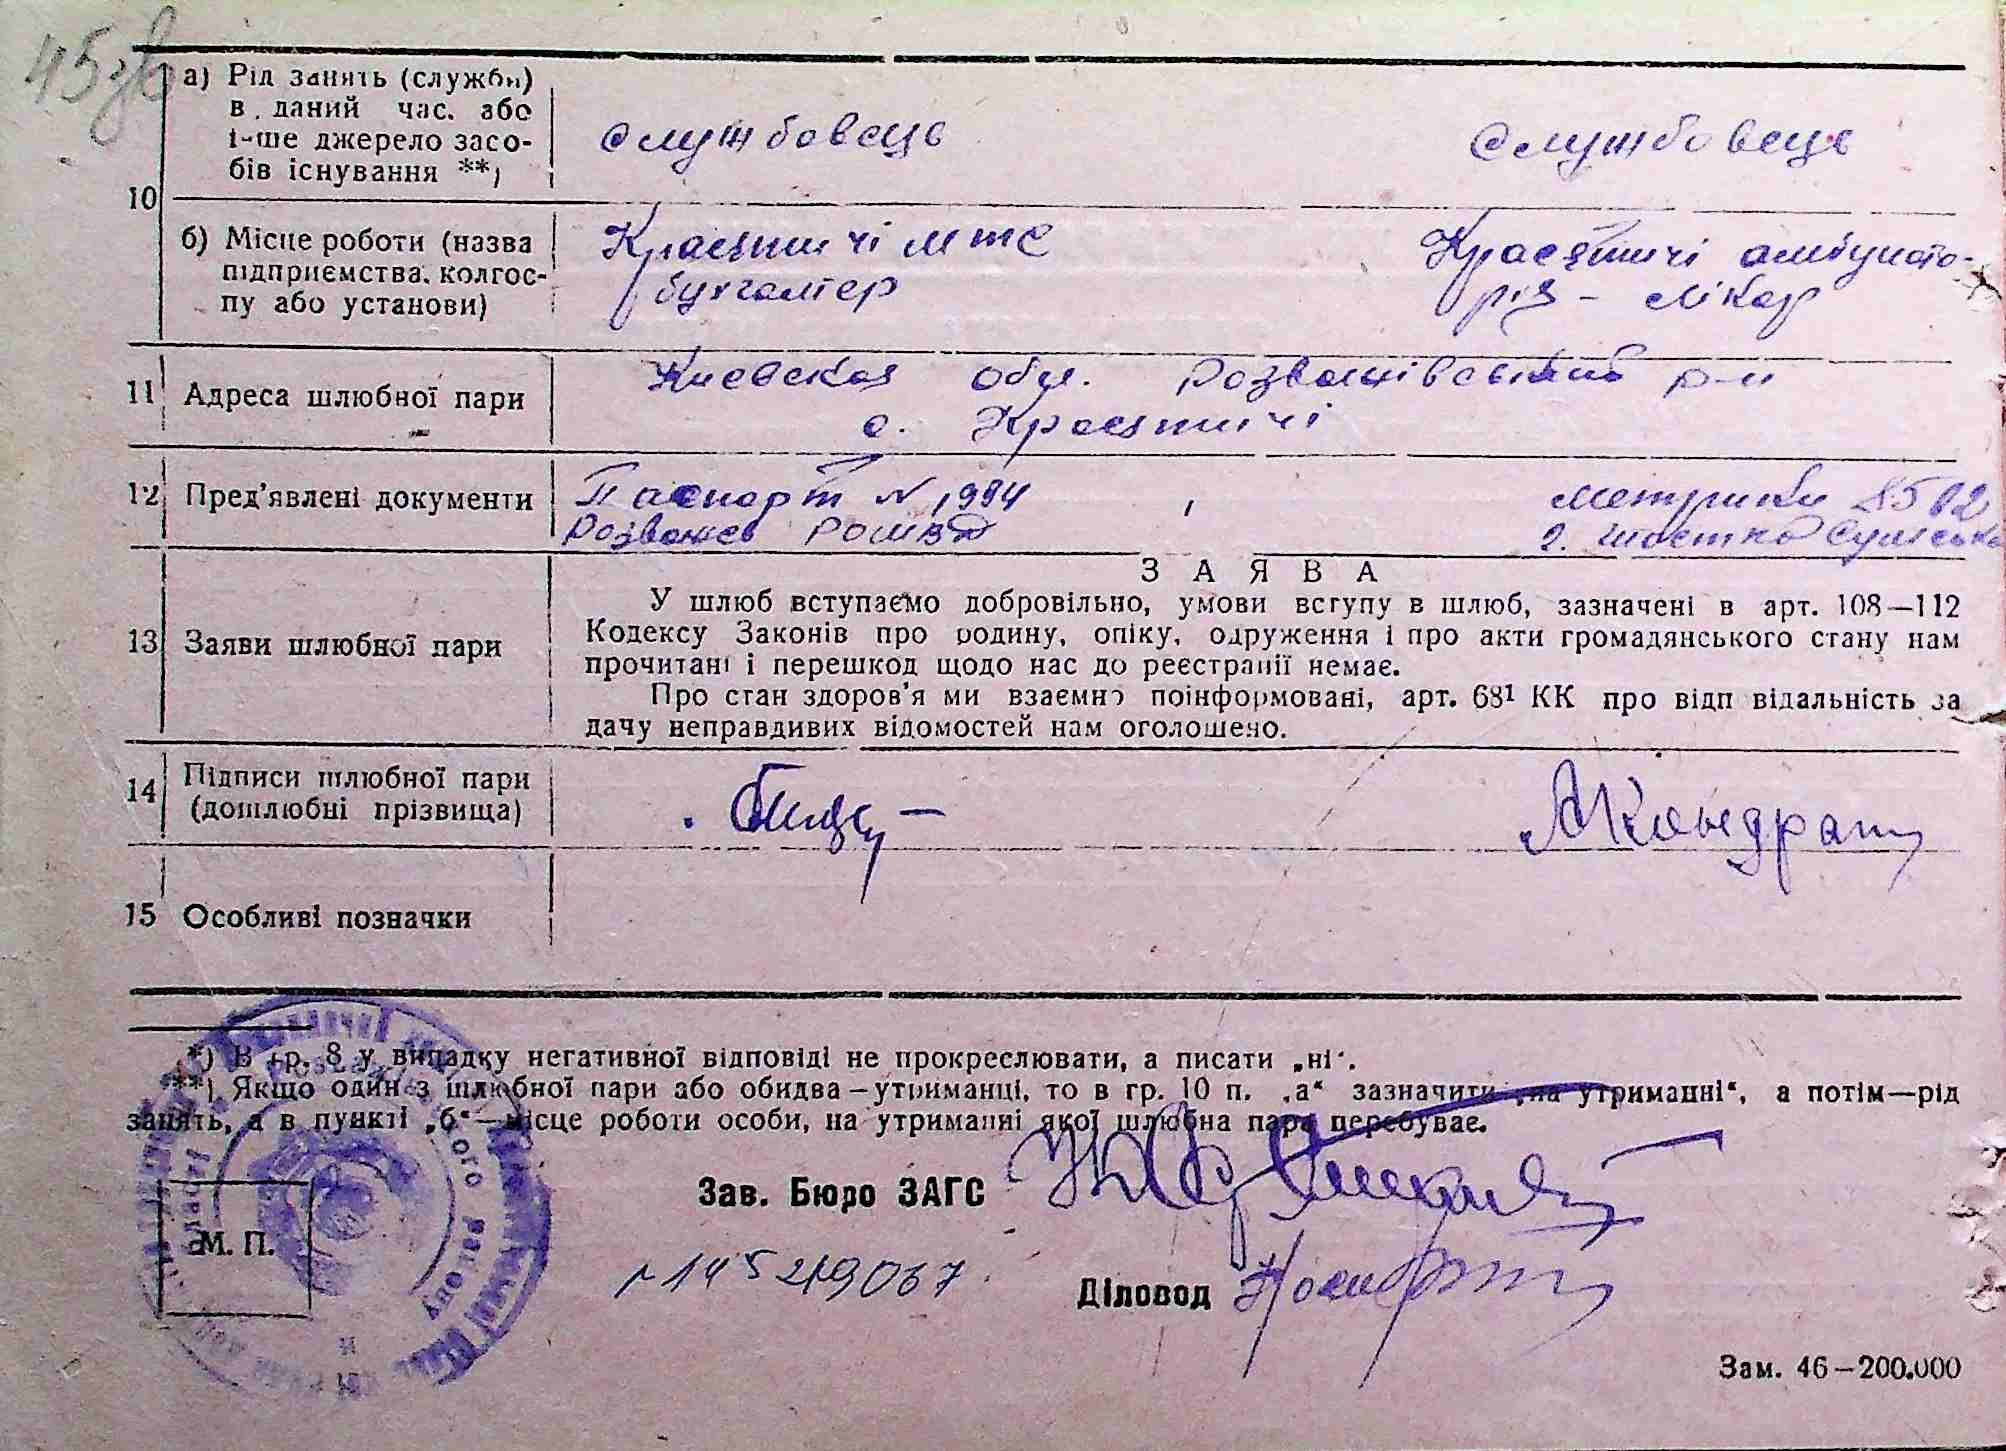 45зв
а) Рід занять (служби)
в даний час або
інше джерело засо-
бів існування **)
Службовець
Службовець
10
б) Місце роботи (назва
підприємства, колгос-
пу або установи)
Красятичі мтс
бухгалтер
Красятичі амбулато-
рія - лікар
11 Адреса шлюбної пари
Киевская обл. Розважівський р-н
с. Красятичі
12 Пред'явлені документи
Паспорт N 1994
Розважев РОМВД
Метрики
г. Шостка Сумська
13 Заяви шлюбної пари
ЗАЯВА
У шлюб вступаємо добровільно, умови вступу в шлюб, зазначені в арт. 108—112
Кодексу Законів про родину, опіку, одруження і про акти громадянського стану нам
прочитані і перешкод щодо нас до реєстрації немає.
Про стан здоров'я ми взаємно поінформовані, арт. 68¹ КК про відповідальність за
дачу неправдивих відомостей нам оголошено.
14 Підписи шлюбної пари
(дошлюбні прізвища)
АКондрат
15 Особливі позначки
*) В гр. 8 у випадку негативної відповіді не прокреслювати, а писати „ні".
**) Якщо один з шлюбної пари або обидва—утриманці, то в гр. 10 п. „а" зазначити „на утриманні", а потім—рід
занять, а в пункті „б"—місце роботи особи, на утриманні якої шлюбна пара перебуває.
Зав. Бюро ЗАГС
М. П.
Діловод
Зам. 46—200.000